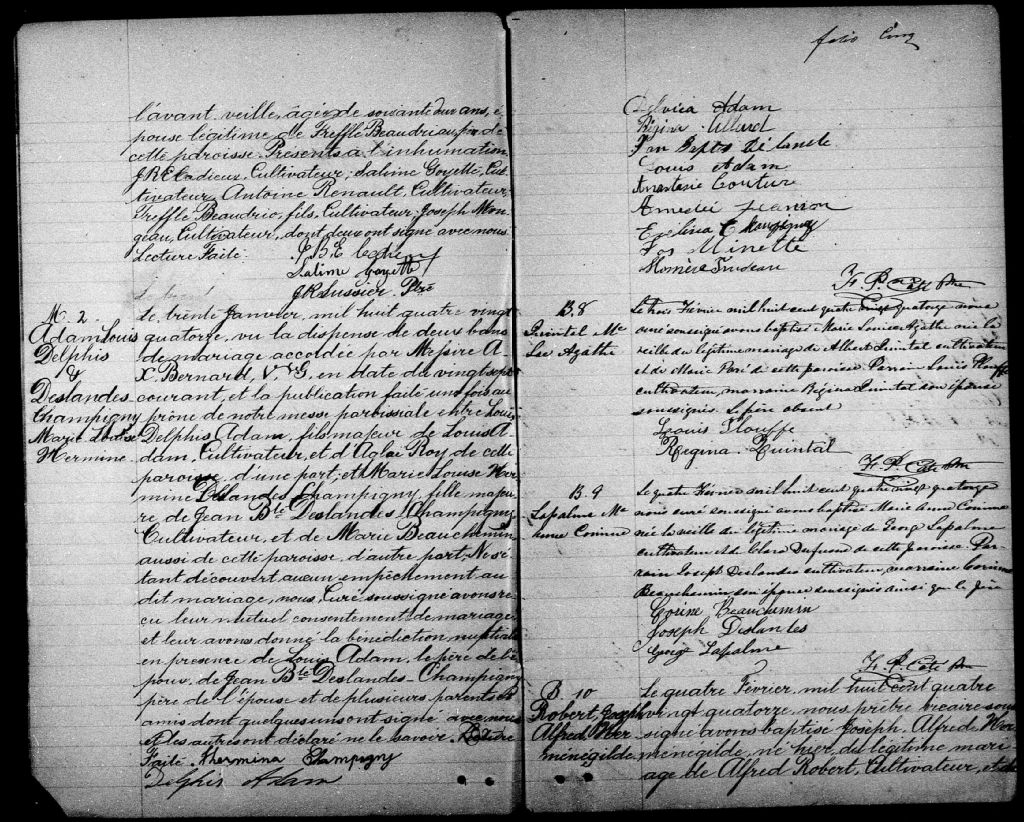 l'avant veille, agée de soixante deux ans, é
pouse légitime de Treffle Beaudriau, fu de
cette paroisse. Présents à l'inhumation,
Cultivateur, Salime Goyette, Cul
tivateur, Antoine Renault, Cultivateur,
Treffle Beaudrio, fils, Cultivateur, Joseph Mon
geau, Cultivateur, dont deux ont signé avec nous.
Lecture Faite.
Salim Goyette
J R Lussier Ptre
M. 2.
Adam Louis
Delphis
&
Deslandes
Champigny
Marie Louise
Hermine
Le trente Janvier, mil huit cent quatre vingt
quatorze, vu la dispense de deux bans
de mariage accordée par Messire A.
X. Bernard, V. G, en date du vingt sept
courant, et la publication faite une fois au
prône de notre messe paroissiale entre Louis
Delphis Adam, fils majeur de Louis A-
dam, Cultivateur, et d'Aglaé Roy de cette
paroisse, d'une part; et Marie Louise Her
mine Deslandes Champigny, fille majeu
re de Jean Bte Deslandes Champigny,
Cultivateur, et de Marie Beauchemin
aussi de cette paroisse, d'autre part; Ne s'é
tant découvert aucun empêchement au
dit mariage, nous, Curé soussigné avons re
çu leur mutuel consentement de mariage
et leur avons donné la bénédiction nuptiale
en présence de Louis Adam, le père de l'é
poux, de Jean Bte Deslandes-Champigny
père de l'épouse et de plusieurs parents et
amis dont quelques uns ont signé avec nous
et les autres ont déclaré ne le savoir. Lecture
Faite. Hermina Champigny
Delphis Adam
folio Cinq
Adam
Régina Allard
Louis Adam
Anastasie Couture
Amedée
Evelina Champigny
Jos Minette
Homère Trudeau
F. P. Côté Ptre
B. 8
Quintal Me
Lse Agathe
Le trois Février mil huit cent quatre vingt quatorze nous
curé soussigné avons baptisé Marie Louise Agathe née la
veille du légitime mariage de Albert Quintal cultivateur
et de Marie Paré de cette paroisse Parrain Louis Plouffe
cultivateur, marraine Régina Quintal son épouse
soussignés. Le père absent
Louis Plouffe
Regina Quintal
F. P. Côté Ptre
B. 9
Lapalme Me
Anne Corinne
Le quatre Février mil huit cent quatre vingt quatorze
nous curé soussigné avons baptisé Marie Anne Corinne
née la veille du légitime mariage de Georg Lapalme
cultivateur et de Clara Dufresne de cette paroisse. Par
rain Joseph Deslandes cultivateur, marraine Corinne
Beauchemin son épouse soussignés ainsi que le père
Corine Beauchemin
Joseph Deslandes
George Lapalme
F. P. Côté Ptre
B 10
Robert, Joseph
Alfred Her
ménégilde
Le quatre Février, mil huit cent quatre
vingt quatorze, nous prêtre vicaire sous
signé avons baptisé Joseph, Alfred Her
ménégilde, né hier, du légitime mari
age de Alfred Robert, Cultivateur, et de